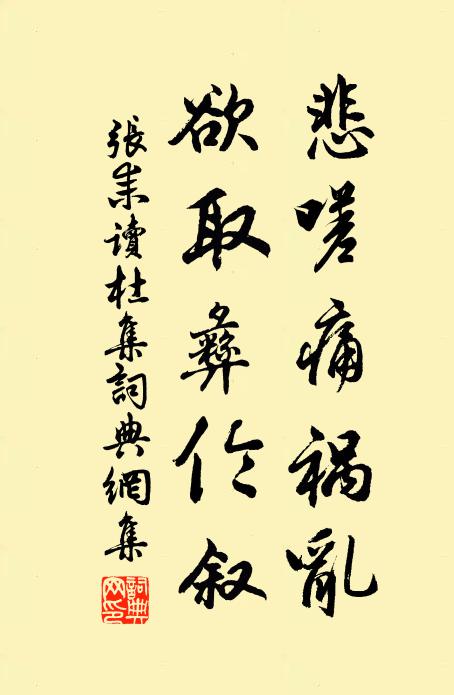 悲嗟痛祸亂
欲取彝伦叙
張耒讀杜集詞典網集
詞典網印